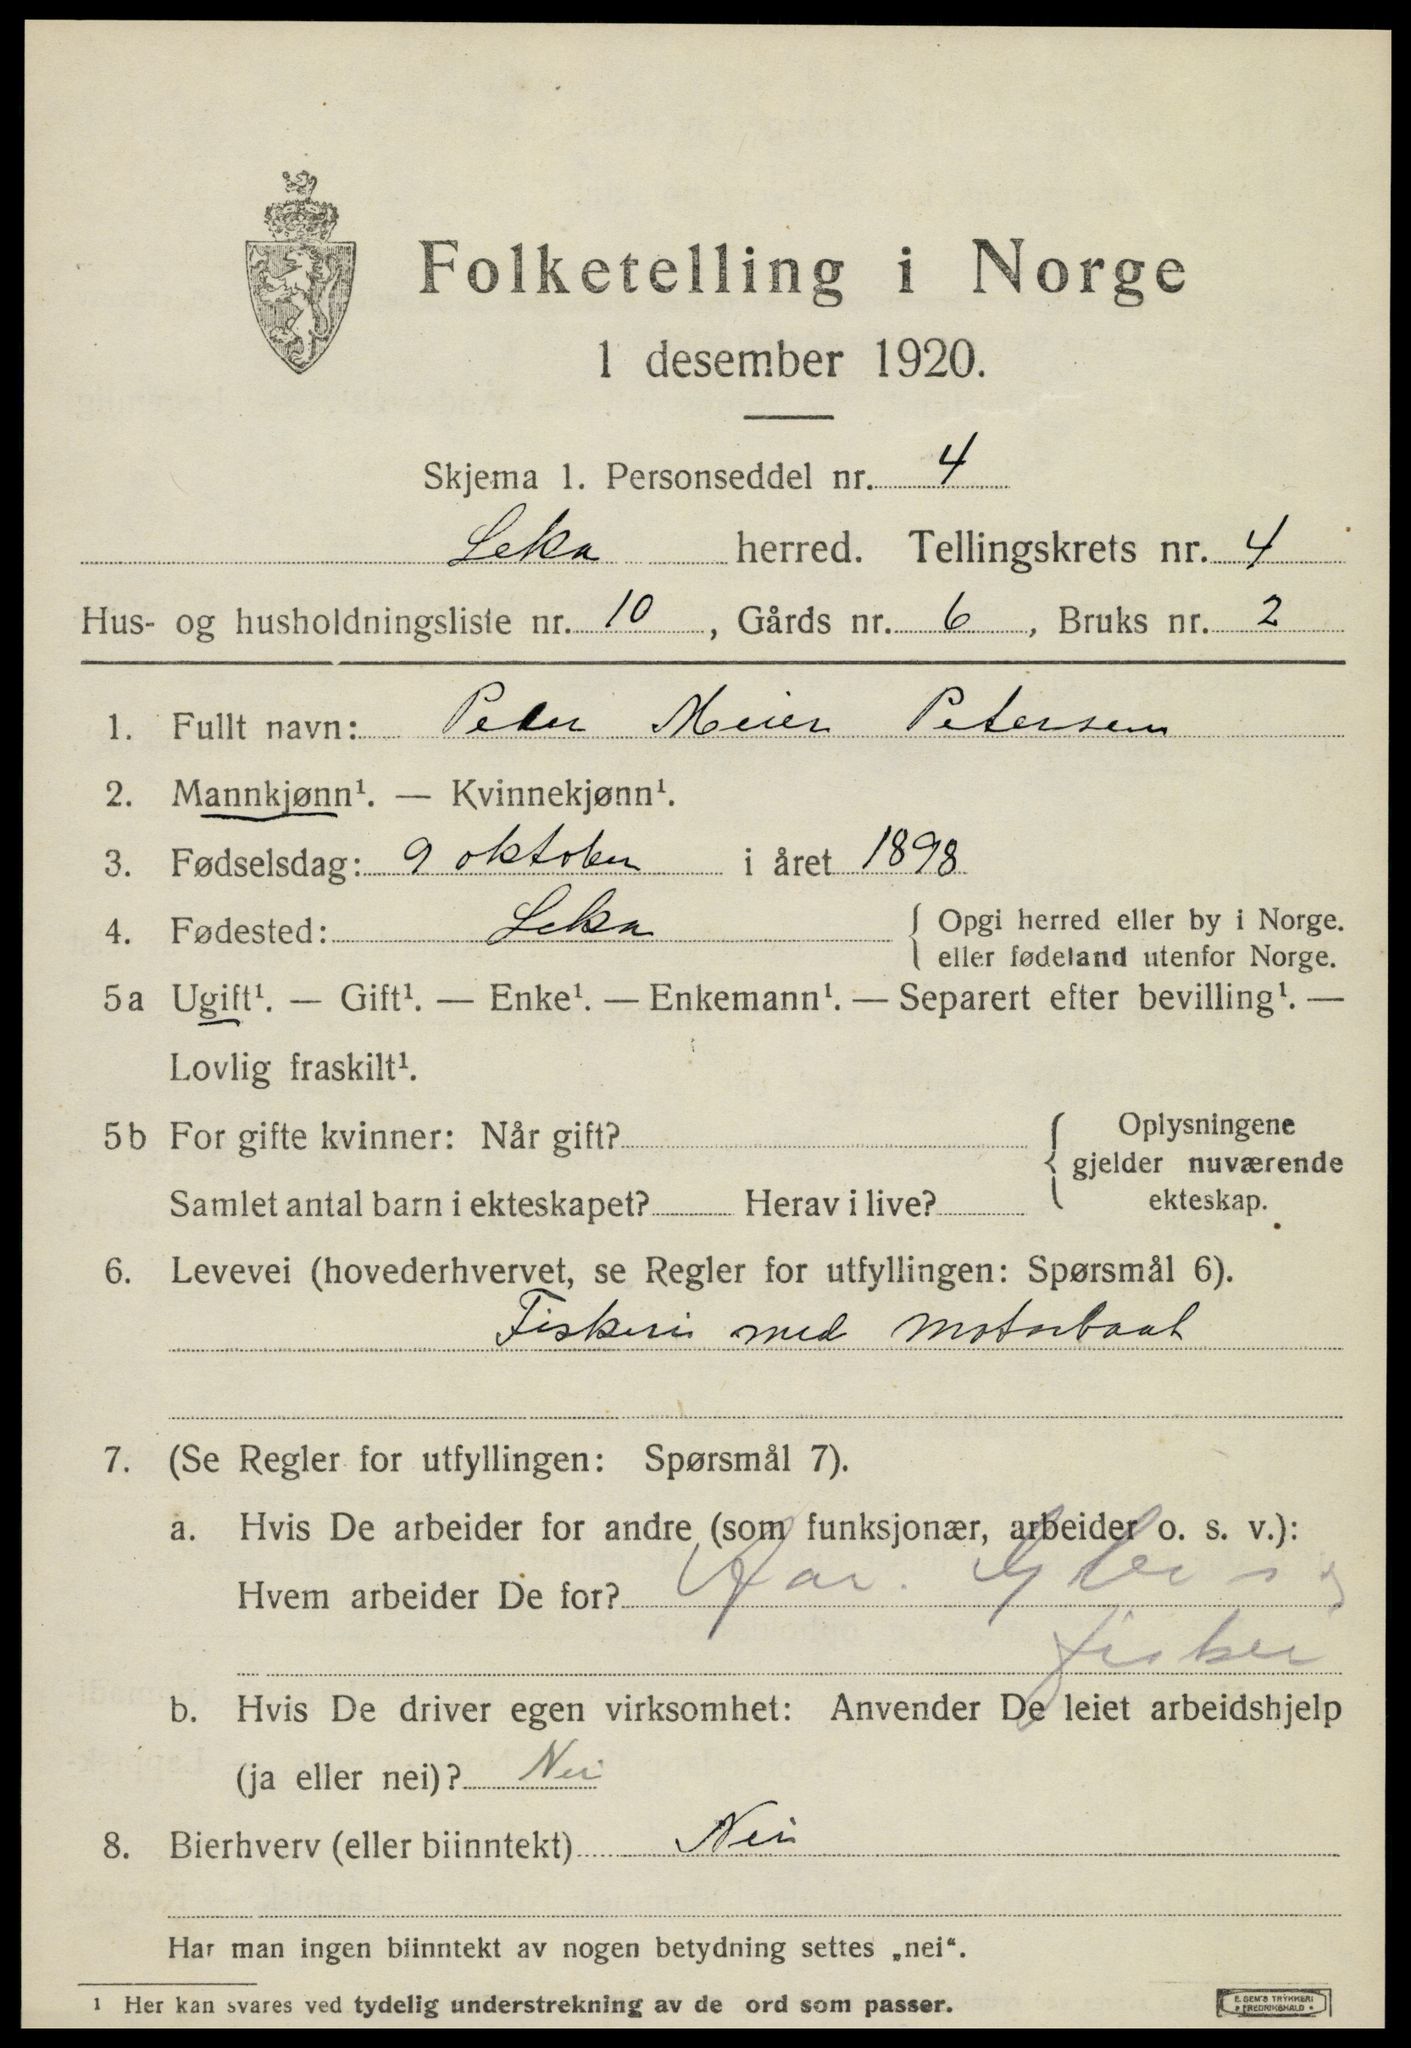 Folketelling i Norge
1 desember 1920.
Skjema 1. Personseddel nr. 4
Leka herred. Tellingskrets nr. 4
Hus- og husholdningsliste nr. 10, Gårds nr. 6, Bruks nr. 2
1. Fullt navn: Peder Meier Petersen
2. Mannkjønn¹. — Kvinnekjønn¹.
3. Fødselsdag: 9 oktober i året 1898
4. Fødested: Leka { Opgi herred eller by i Norge.
eller fødeland utenfor Norge.
5a Ugift¹. — Gift¹. — Enke¹. — Enkemann¹. — Separert efter bevilling¹. —
Lovlig fraskilt¹.
5b For gifte kvinner: Når gift? { Oplysningene
gjelder nuværende
Samlet antal barn i ekteskapet? Herav i live? ekteskap.
6. Levevei (hovederhvervet, se Regler for utfyllingen: Spørsmål 6).
Fiskeri med motorbaat
7. (Se Regler for utfyllingen: Spørsmål 7).
a. Hvis De arbeider for andre (som funksjonær, arbeider o. s. v.):
Hvem arbeider De for?
fisker
b. Hvis De driver egen virksomhet: Anvender De leiet arbeidshjelp
(ja eller nei)? Nei
8. Bierhverv (eller biinntekt) Nei
Har man ingen biinntekt av nogen betydning settes „nei“.
¹ Her kan svares ved tydelig understrekning av de ord som passer.
E. SEM'S TRYKKERI
• FREDRIKSHALD •